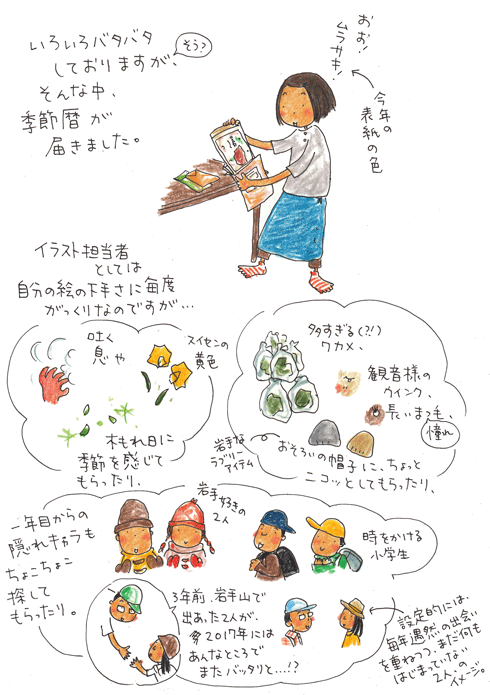 いろいろバタバタ
しておりますが、
そう?
そんな中、
季節暦が
届きました。
おお!
ムラサキ!
今年の
表紙の色
イラスト担当者
としては
自分の絵の下手さに毎度
がっくりなのですが…
吐く
息や
スイセンの
黄色
木もれ日に
季節を感じて
もらったり、
多すぎる(?!)
ワカメ、
観音様の
ウインク、
長いまつ毛、
憧れ
岩手な
ラブリー
アイテム
おそろいの帽子に、ちょっと
ニコッとしてもらったり、
一年目からの
隠れキャラも
ちょこちょこ
探して
もらったり。
岩手好きの
2人
時をかける
小学生
3年前、岩手山で
出あった2人が、
2017年には
あんなところで
またバッタリと…!?
設定的には、
毎年偶然の出会い
を重ねつつ、まだ何も
はじまっていない
2人の
イメージ。